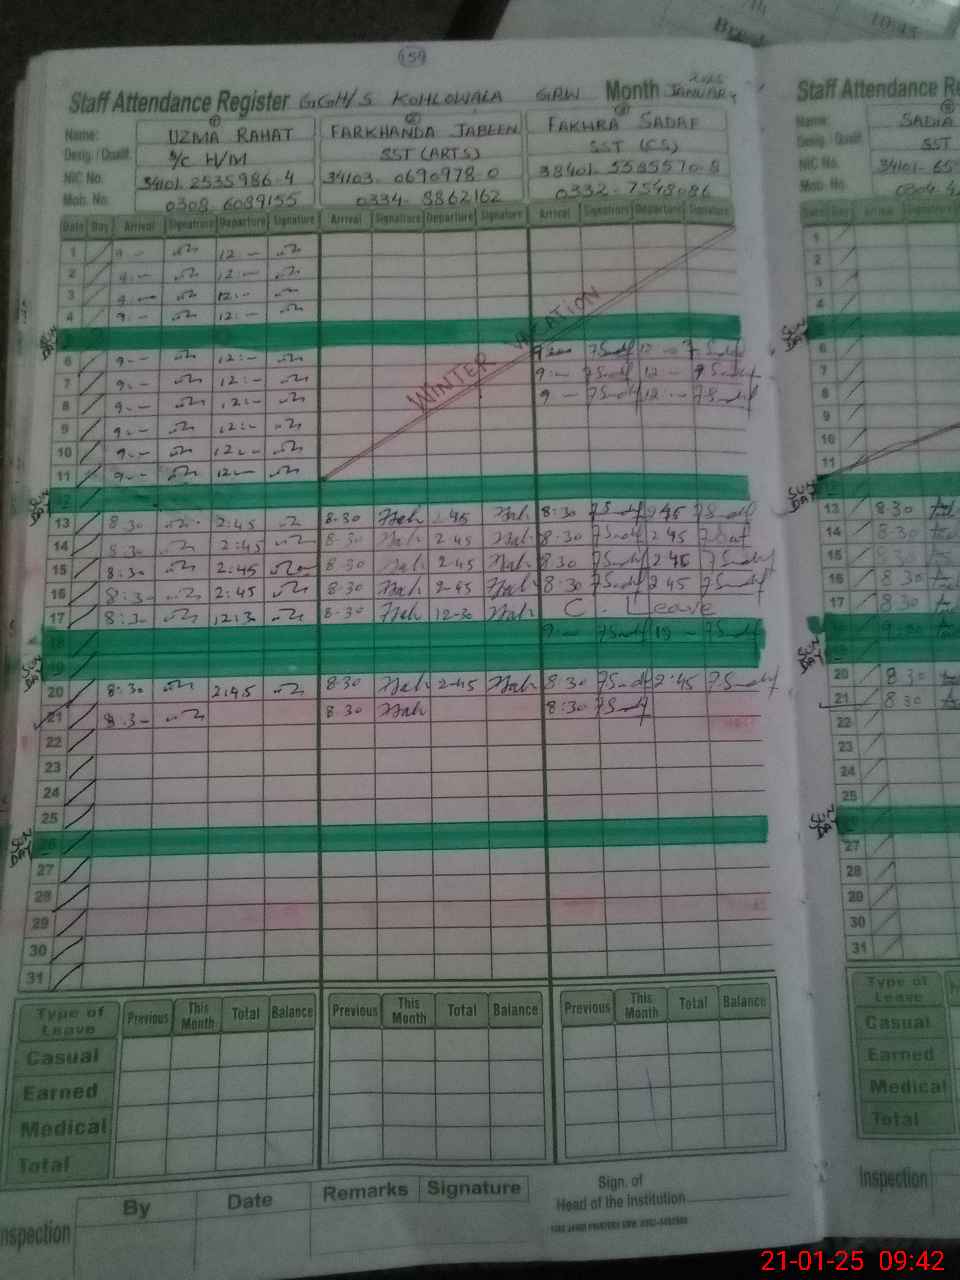 159
Staff Attendance Register GGH/S KOHLOWALA GRW Month JANUARY 2025
Name: UZMA RAHAT FARKHANDA JABEEN FAKHRA SADAF
Desig. / Qualif. S/C H/M SST (ARTS) SST (CS)
NIC No. 34101-2535986-4 34103-0690978-0 38401-5585570-8
Mob. No. 0308-6089155 0334-8862162 0332-7548086
Date Day Arrival Signature Departure Signature Arrival Signature Departure Signature Arrival Signature Departure Signature
1 9 - 12:-
2 9:- 12:-
3 9:- 12:-
4 9:- 12:-
SUN DAY
WINTER VACATION
6 9:- 12:- 12 -
7 9:- 12:- 9:- 12 -
8 9:- 12:- 9 - 12 -
9 9:- 12:-
10 9:- 12:-
11 9:- 12:-
SUN DAY 12
13 8:30 2:45 8-30 2 45 8:30 2 45
14 8:30 2:45 8-30 2 45 8-30 2 45
15 8:30 2:45 8-30 2-45 8:30 2 45
16 8:3- 2:45 8-30 2-45 8:30 2 45
17 8:3- 12:3- 8-30 12-30 C. Leave
18 9 -
SUN DAY 19
20 8:30 2:45 8-30 2-45 8:30 2:45
21 8:3- 8 30 8:30
22
23
24
25
SUN DAY 26
27
28
29
30
31
Type of Leave Previous This Month Total Balance Previous This Month Total Balance Previous This Month Total Balance
Casual
Earned
Medical
Total
Inspection By Date Remarks Signature
Sign. of
Head of the Institution
Staff Attendance Re
Name: SADIA
Desig. / Qualif. SST
NIC No. 34101-65
Mob. No.
Date Day Arrival Signature
1
2
3
4
SUN DAY
6
7
8
9
10
11
SUN DAY
13 8 30
14 8 30
15 8 30
16 8 30
17 8 30
SUN DAY
20 8 30
21 8 30
22
23
24
25
SUN DAY
27
28
29
30
31
Type of Leave
Casual
Earned
Medical
Total
Inspection
21-01-25 09:42